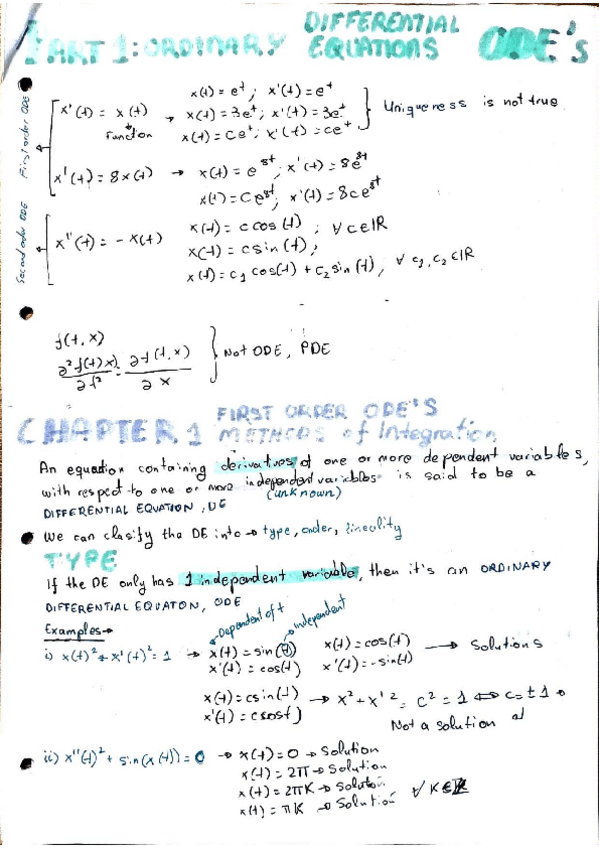 PART 1: ORDINARY DIFFERENTIAL EQUATIONS ODE's
First order ODE
x'(t) = x(t) → x(t) = e^t ; x'(t) = e^t
function
x(t) = 3e^t ; x'(t) = 3e^t
x(t) = Ce^t ; x'(t) = ce^t
Uniqueness is not true
x'(t) = 8x(t) → x(t) = e^8t ; x'(t) = 8e^8t
x(t) = Ce^8t, x'(t) = 8ce^8t
Second order ODE
x''(t) = - x(t)
x(t) = c cos(t) ; ∀ c∈IR
x(t) = c sin(t) ;
x(t) = c1 cos(t) + c2 sin(t), ∀ c1, c2 ∈IR
f(t, x)
∂²f(t,x)/∂t² = ∂f(t, x)/∂x
Not ODE, PDE
CHAPTER 1 FIRST ORDER ODE'S
METHODS of Integration
An equation containing derivatives of one or more dependent variables,
with respect to one or more independent variables is said to be a
(unknown)
DIFFERENTIAL EQUATION, DE
We can clasify the DE into → type, order, lineality
TYPE
If the DE only has 1 independent variable, then it's an ORDINARY
DIFFERENTIAL EQUATON, ODE
Examples→
Dependent of t
independent
i) x(t)² + x'(t)² = 1 → x(t) = sin(t) x(t) = cos(t) → Solutions
x'(t) = cos(t) x'(t) = -sin(t)
x(t) = c sin(t) → x² + x'² = c² = 1 ⟺ c = ±1
x'(t) = c cos t)
Not a solution at
ii) x''(t)² + sin(x(t)) = 0 → x(t) = 0 → Solution
x(t) = 2π → Solution
x(t) = 2πK → Solution
x(t) = πK → Solution ∀ K∈